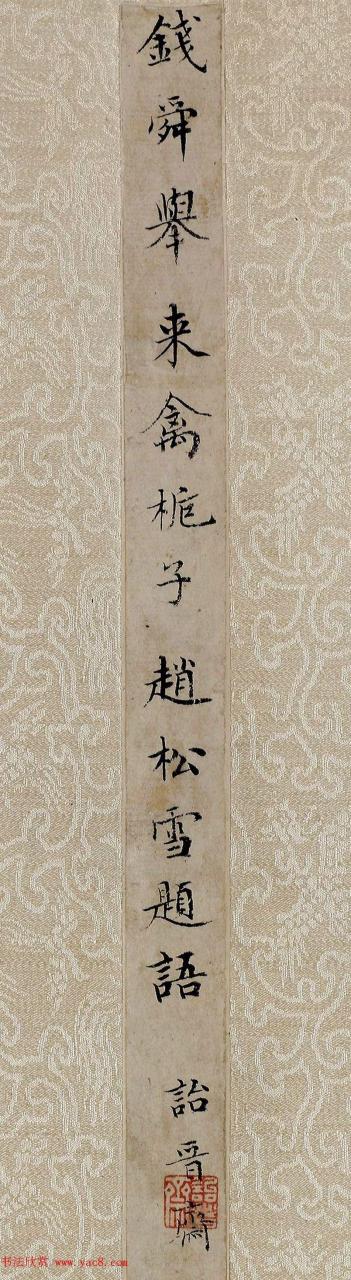 錢舜舉来禽梔子趙松雪題語
詒晉齋
书法欣赏 www.yac8.com